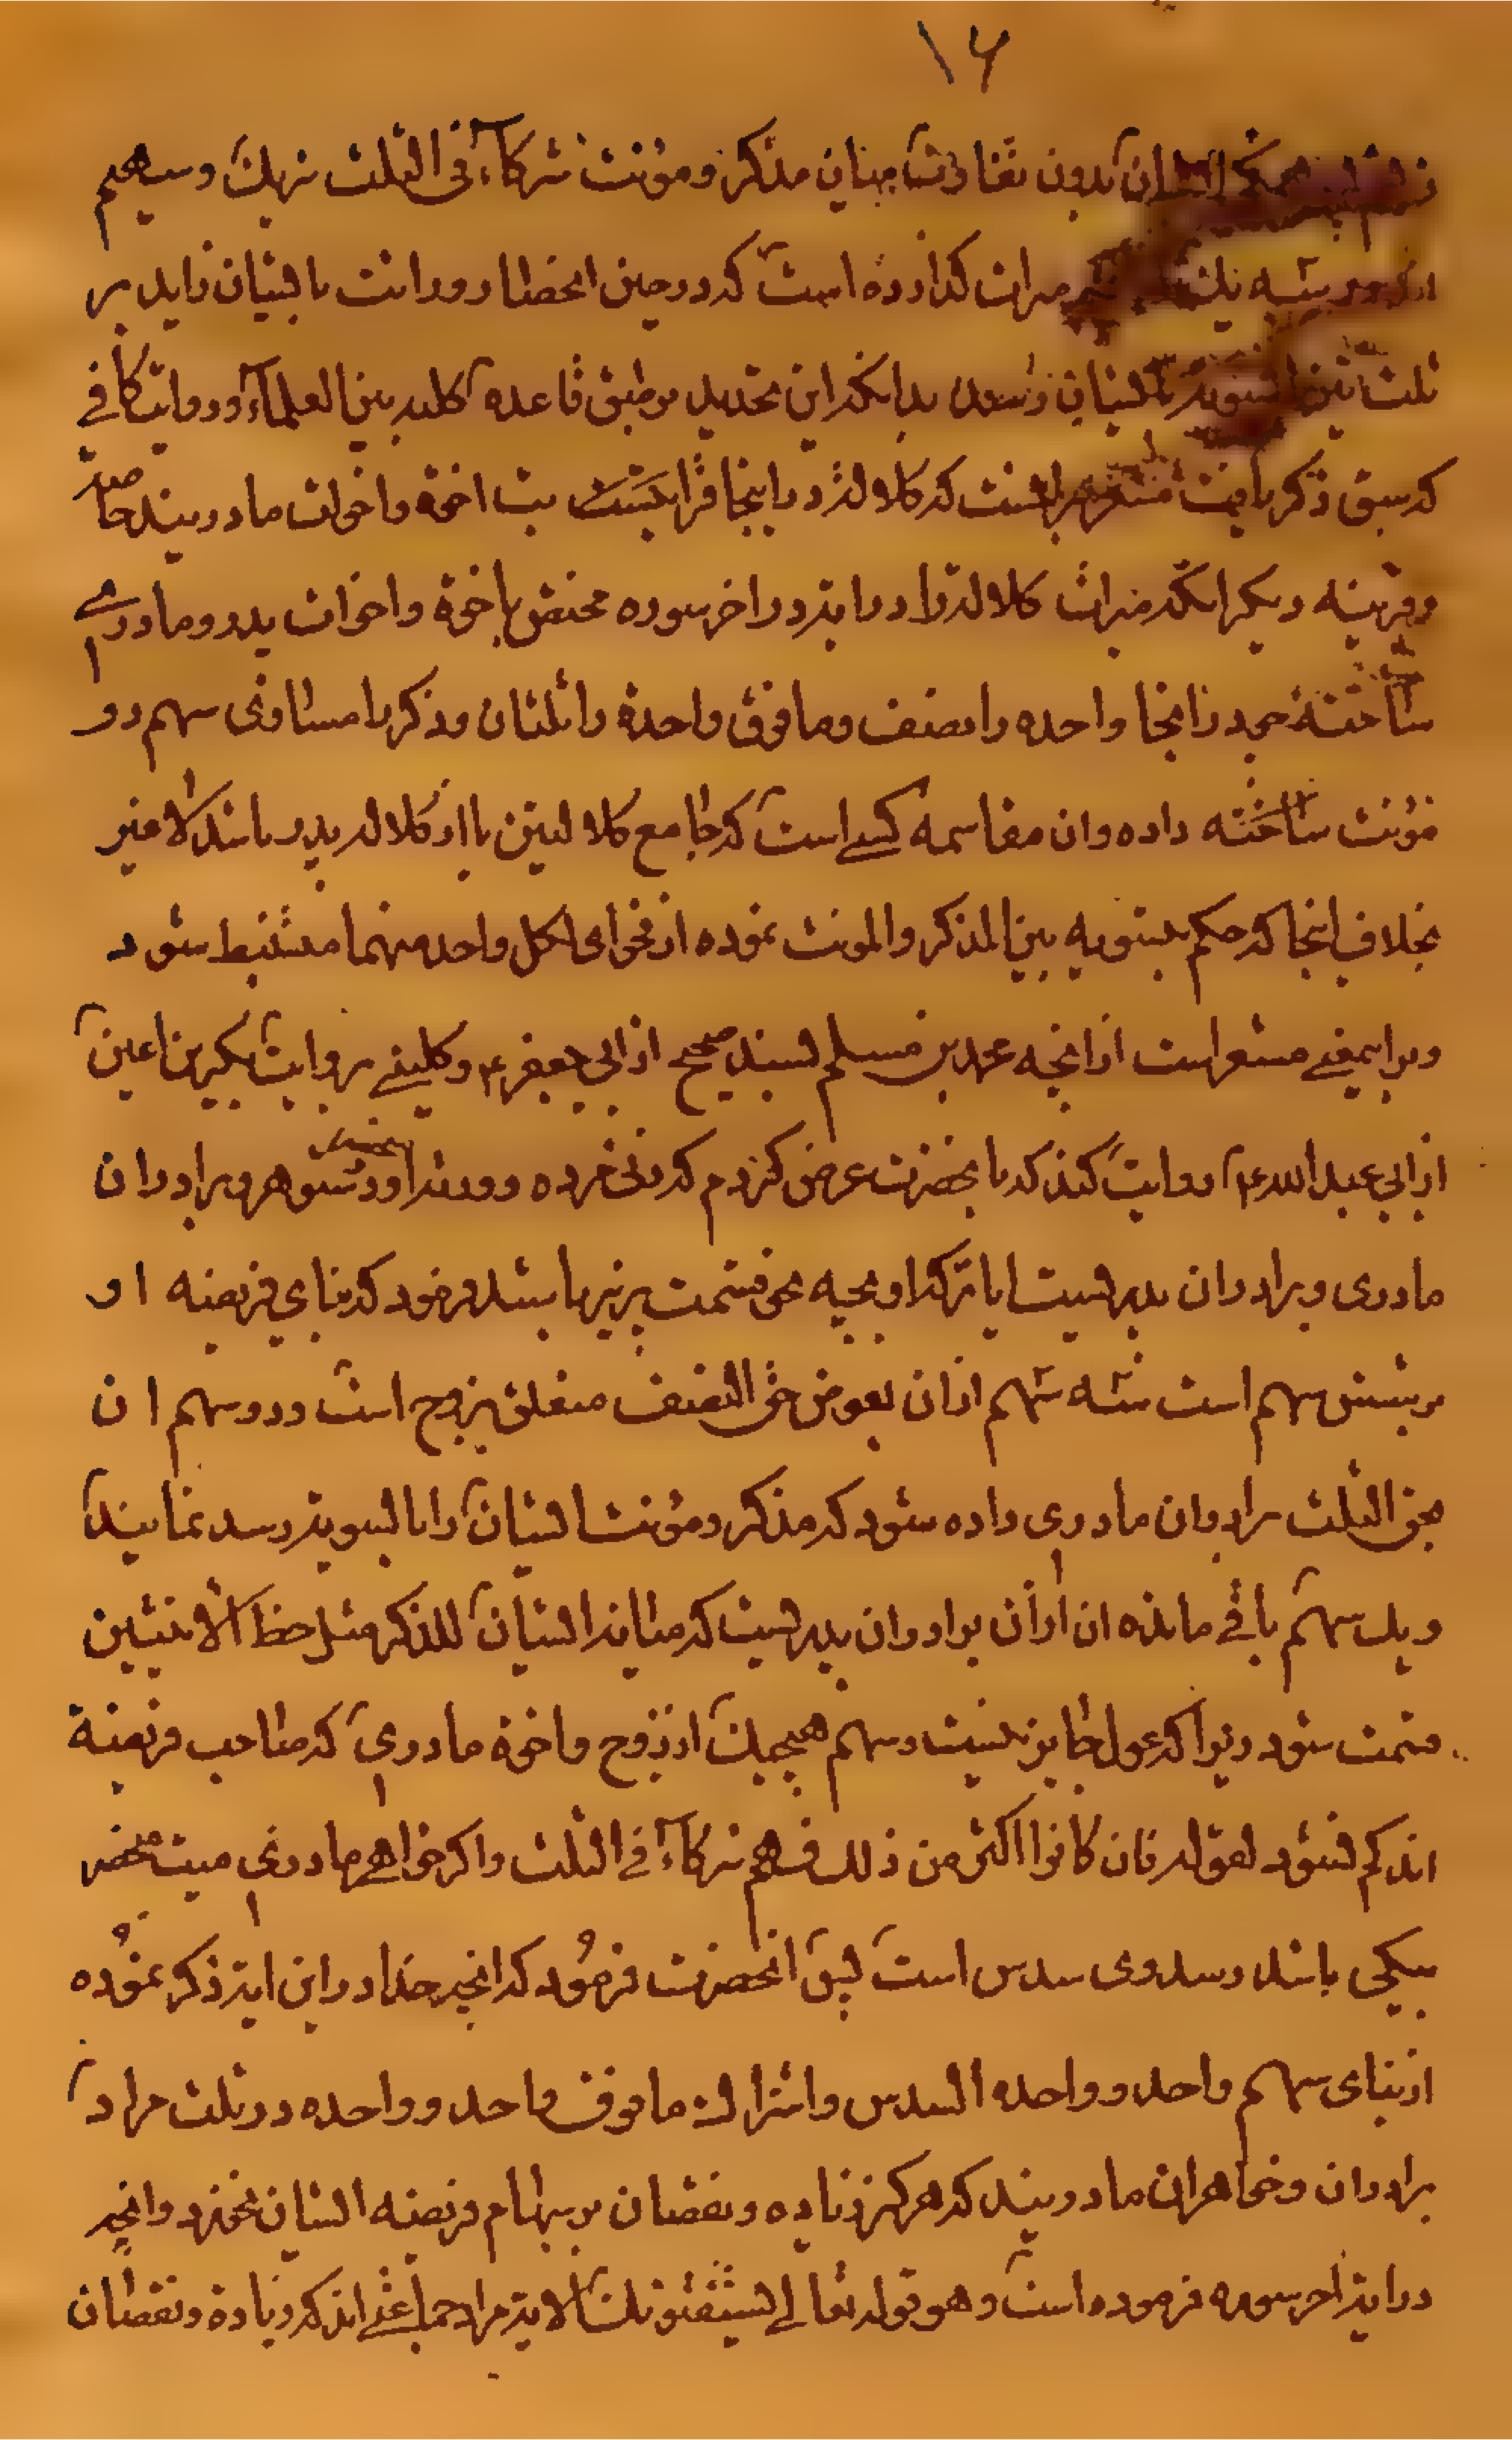 ۱۶
ایشان بدون تفاوت میان مذکر ومؤنث شرکاء فی الثلث شریک وسهیم
میراث کذارده است که در حین انحصار وراثت بایشان زاید بر
ثلث نیز بالسویه بایشان رسد بدانکه این تحدید بر طبق قاعده کلیه بین العلماء وروایت کافی
که سبق ذکر یافت که کلاله در اینجا قرابتست اخوة واخوات مادریند خاصه
وقرینه دیکر انکه میراث کلاله را در ایه در اخر سوره مختص باخوة واخوات پدر ومادری
ساخته چه در انجا واحده را نصف وما فوق واحدة را ثلثان وذکر را مساوی سهم دو
مؤنث ساخته داده وان مقاسمه کسی است که جامع کلالتین یا از کلاله پدر باشد لا غیر
بخلاف اینجا که حکم بتسویه بین المذکر والمونث نموده از فحوای لکل واحد منهما مستنبط شود
وبر اینمعنی مشعر است از انچه محمد بن مسلم بسند صحیح از ابی جعفر ع وکلینی بروایت بکیر بن اعین
از ابی عبدالله ع روایت کند که بانحضرت عرض کردم که زنی مرده وورثه او شوهر وبرادران
مادری وبرادران پدریست ایا ترکه او بچه نحو قسمت پزیر باشد فرمود که بنای فریضه او
بر شش سهم است سه سهم از ان بعوض حق النصف متعلق بزوج است ودو سهم ان
بحق الثلث برادران مادری داده شود که مذکر ومؤنث ایشان را بالسویه رسد نمایند
ویک سهم باقی مانده ان از ان برادران پدریست که میانه ایشان للذکر مثل حظ الانثیین
قسمت شود زیرا که عول جایز نیست وسهم هیچیک از زوج واخوة مادری که صاحب فریضة
اند کم نشود لقوله فان کانوا اکثر من ذلک فهم شرکاء فی الثلث واکر خواهر مادری میت منحصر
بیکی باشد رسد وی سدس است پس انحضرت فرمود که انچه خدا در این ایه ذکر نموده
از بنای سهم واحد وواحده السدس واشتراک ما فوق واحد وواحده در ثلث مراد
برادران وخواهران مادریند که هرکز زیاده ونقصان بر سهام فریضه ایشان نخورد وانچه
در ایه اخر سوره فرموده است وهو قوله تعالی یستفتونک الایه مراد جماعتی اند که زیادة ونقصان